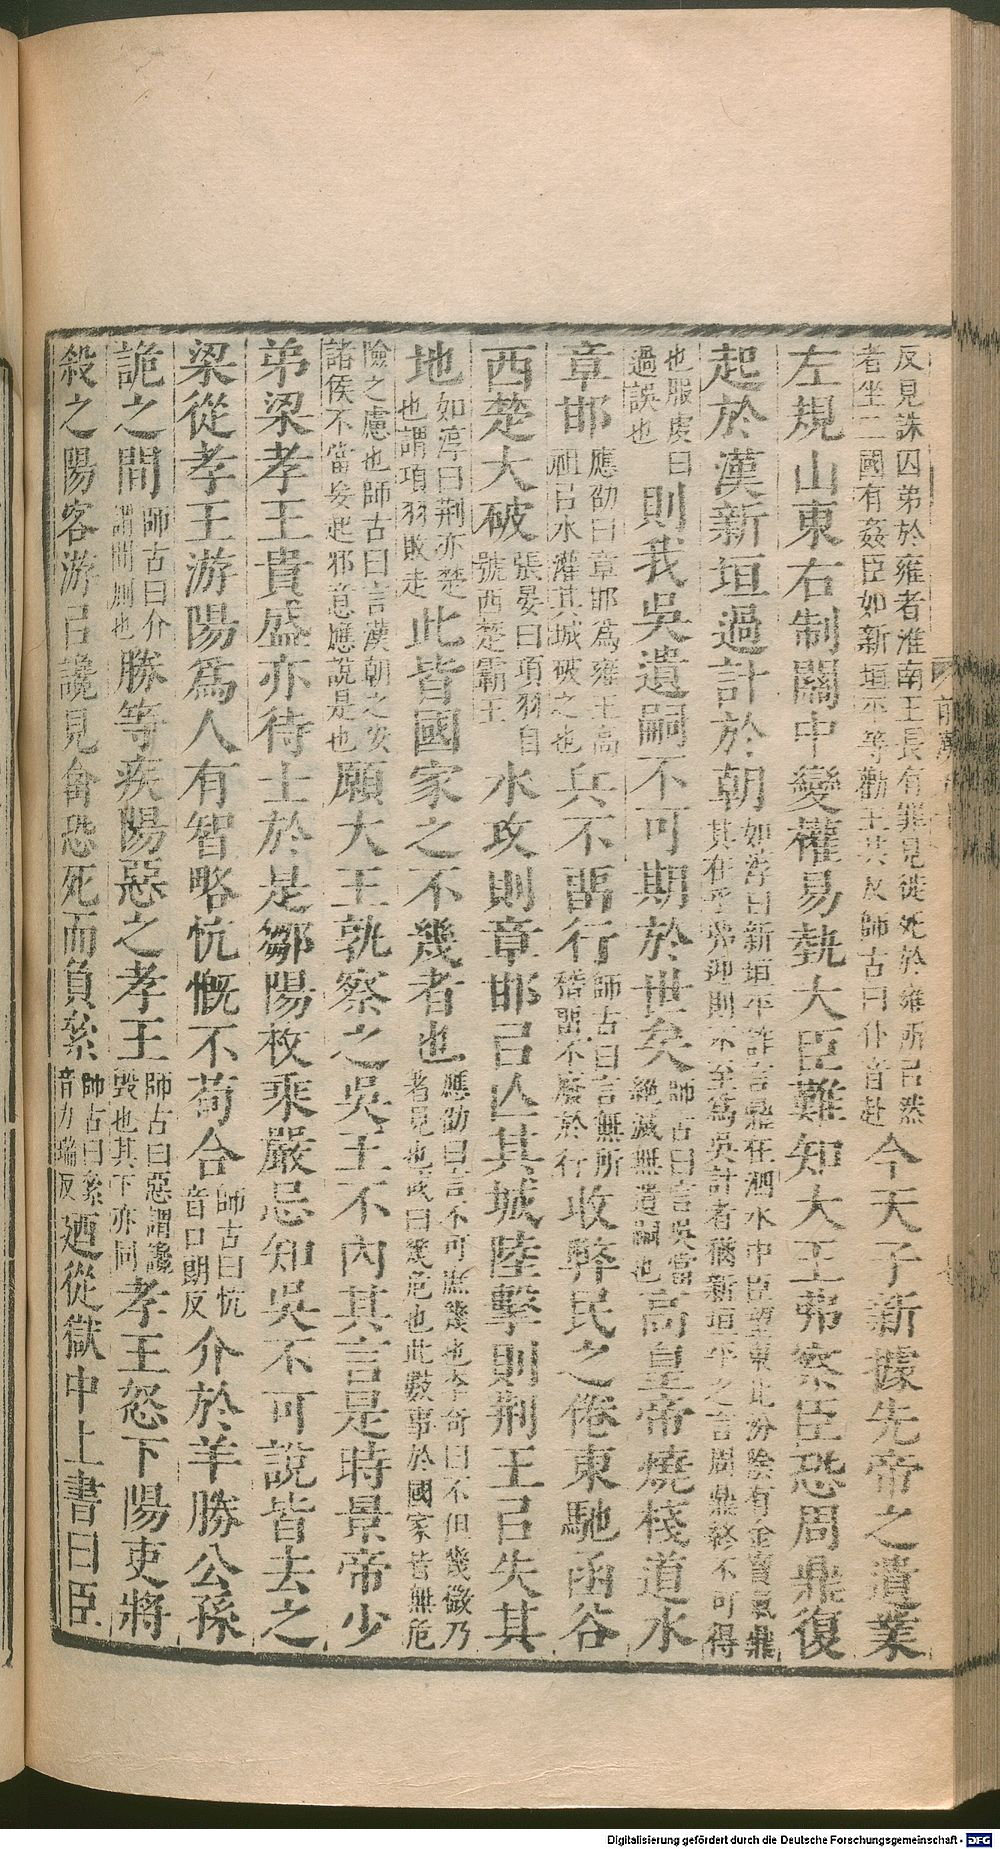 反見誅囚弟於雍者淮南王長有罪見徙死於雍所㠯然者坐二國有姦臣如新垣平等勸王共反師古曰仆音赴今天子新據先帝之遺業
左規山東右制關中變權易埶大臣難知大王弗察臣恐周鼎復
起於漢新垣過計於朝如淳曰新垣平詐言鼎在泗水中臣望東北汾陰有金寶氣鼎其在乎弗迎則不至爲吳計者猶新垣平之言周鼎終不可得
也服虔曰過誤也則我吳遺嗣不可期於世矣師古曰言吳當絕滅無遺嗣也高皇帝燒棧道水
章邯應劭曰章邯爲雍王高祖㠯水灌其城破之也兵不畱行師古曰言無所稽畱不廢於行收弊民之倦東馳函谷
西楚大破張晏曰項羽自號西楚霸王水攻則章邯㠯亾其城陸擊則荆王㠯失其
地如淳曰荆亦楚也謂項羽敗走此皆國家之不幾者也應劭曰言不可庶幾也李奇曰不但幾微乃著見也或曰幾危也此數事於國家皆無危
險之慮也師古曰言漢朝之安諸侯不當妄起邪意應說是也願大王孰察之吳王不內其言是時景帝少
弟梁孝王貴盛亦待士於是鄒陽枚乘嚴忌知吳不可說皆去之
梁從孝王游陽爲人有智略忼慨不苟合師古曰忼音口朗反介於羊勝公孫
詭之間師古曰介謂間廁也勝等疾陽惡之孝王師古曰惡謂讒毀也其下亦同孝王怒下陽吏將
殺之陽客游㠯讒見禽恐死而負絫師古曰絫音力瑞反廼從獄中上書曰臣
Digitalisierung gefördert durch die Deutsche Forschungsgemeinschaft - DFG